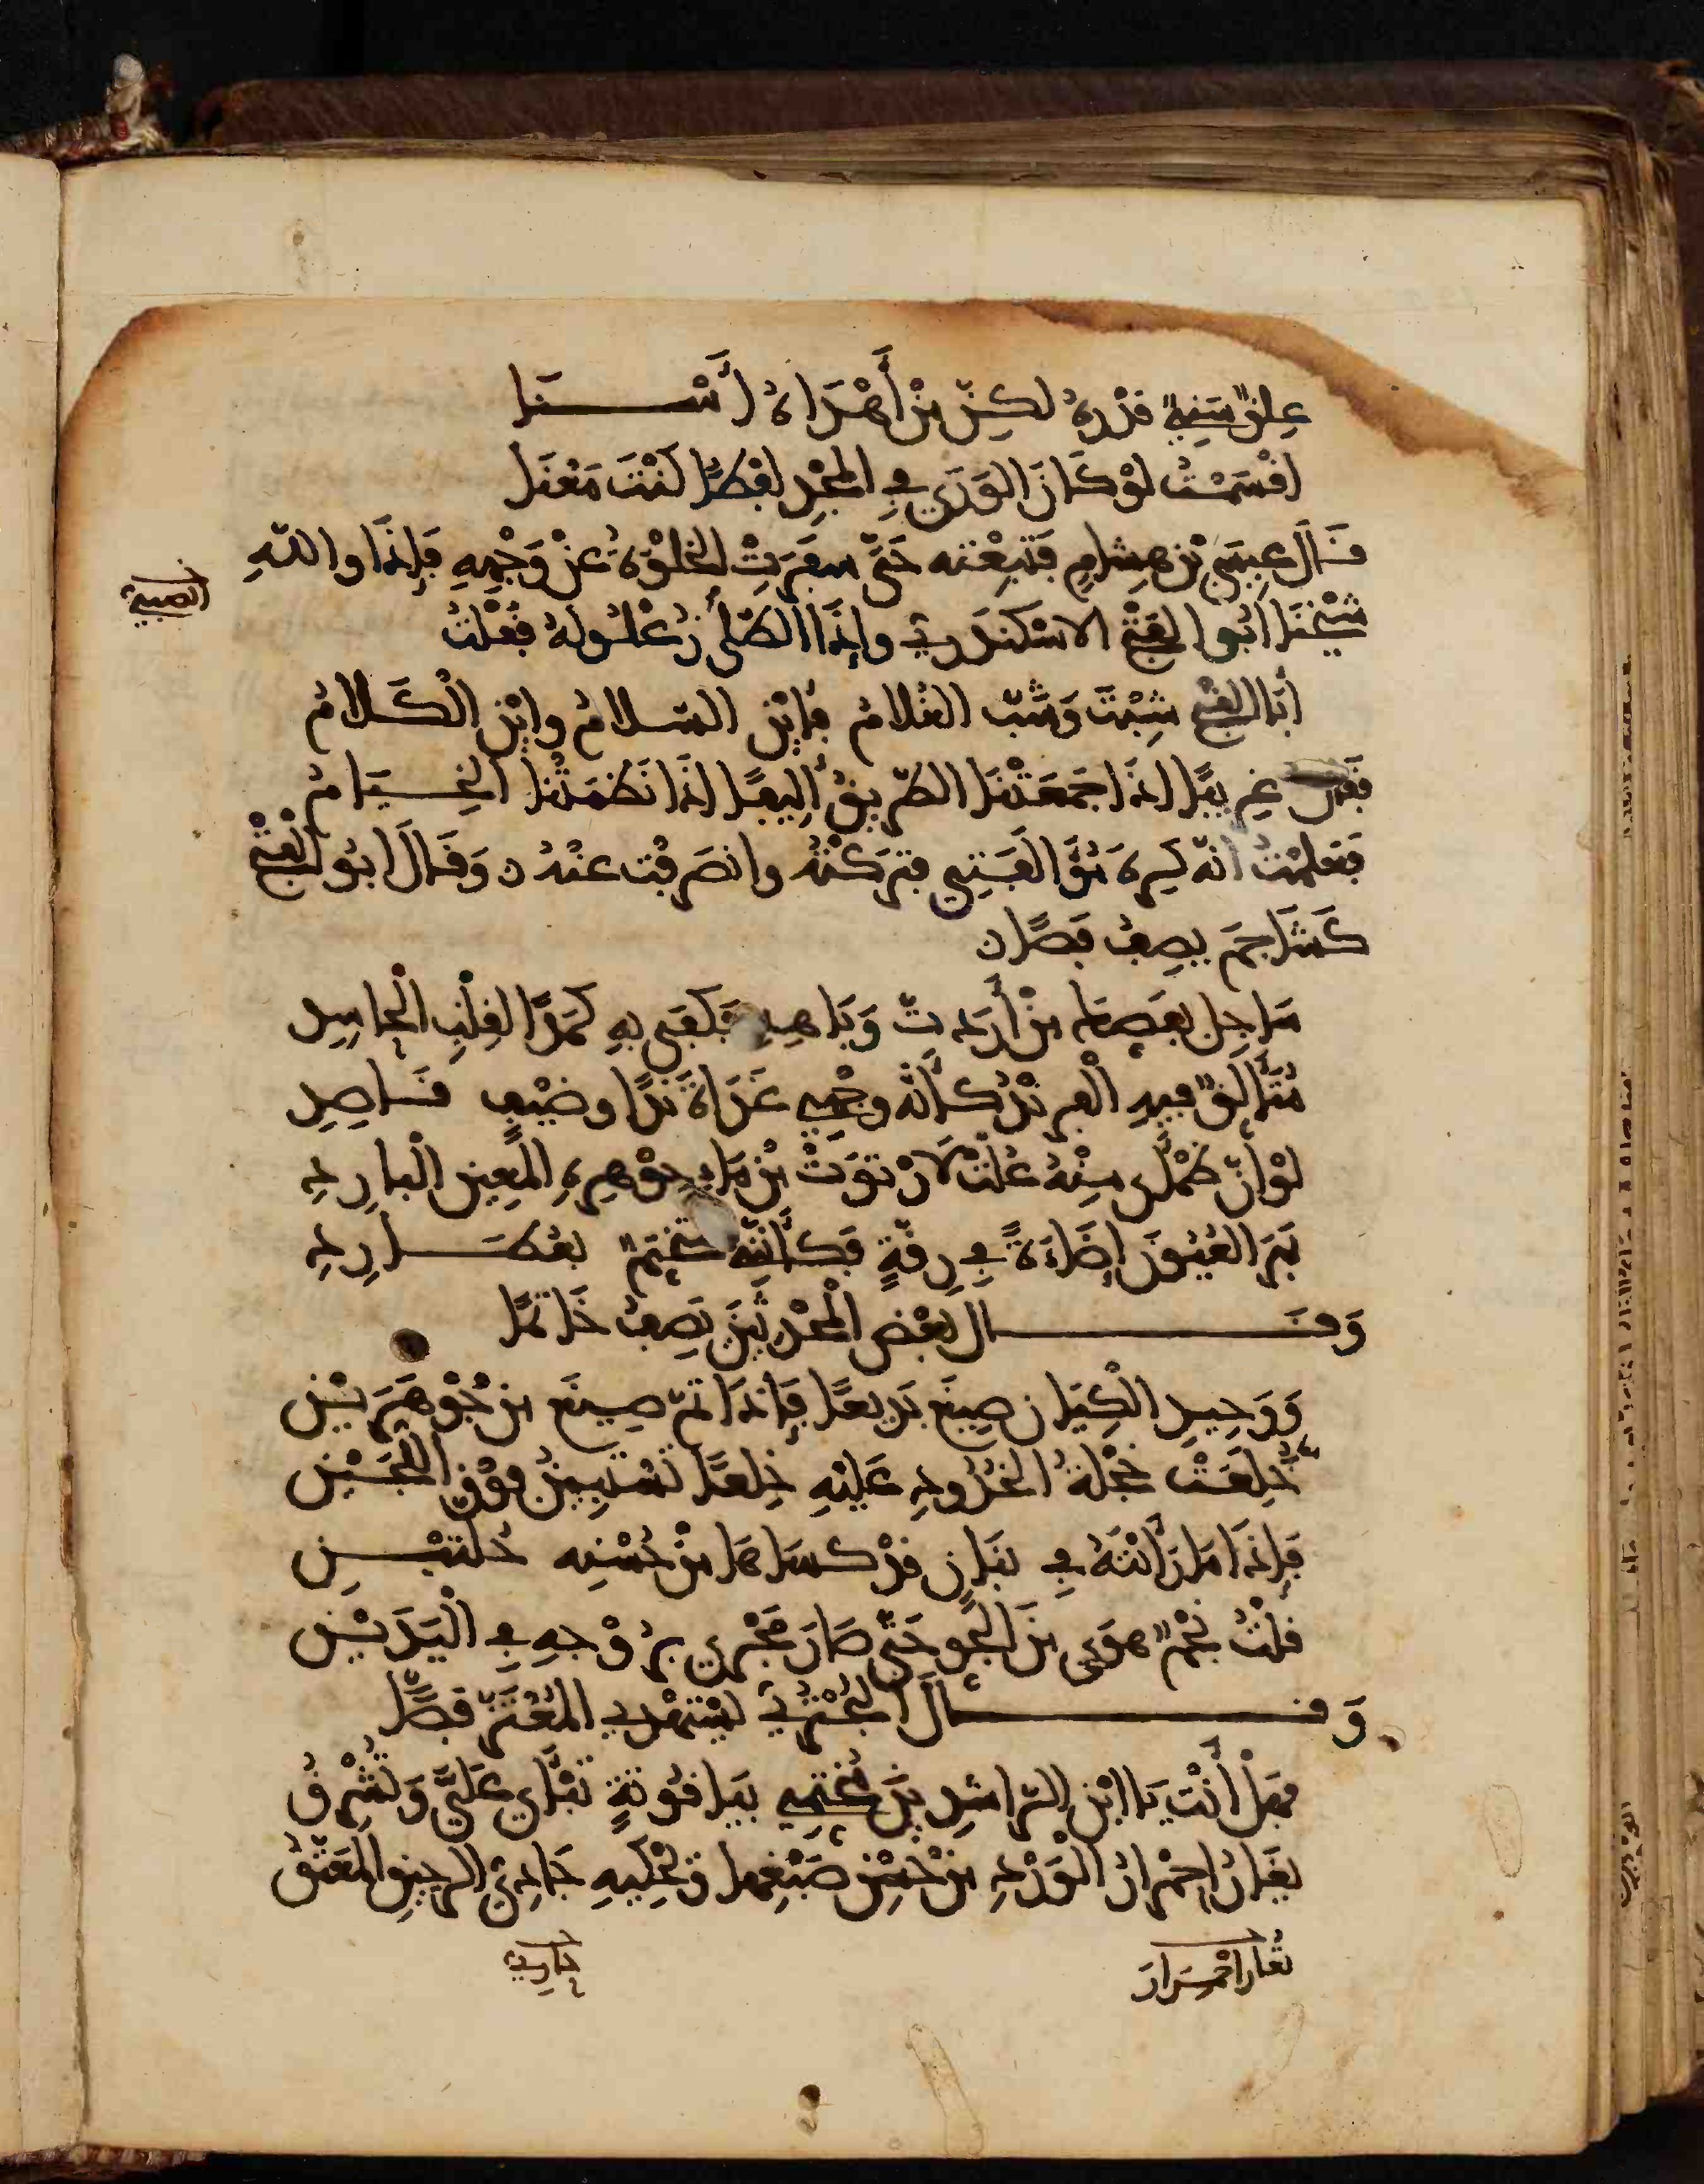 عِلقٌ سَنِيٌّ قَدْرُهُ لَكِنّ مَنْ أَهْدَاهُ أَسْنَا
اقْسَمْتُ لَوْ كَانَ الوَرَى فِي المَجْدِ لَفْظًا كُنْتَ مَعْنَا
قَالَ عِيسَى بْن هِشامٍ فَتَبِعْته حَتَّى سَفَرَتْ الخَلْوَةُ عَنْ وَجْهِهِ فَإِذَا واللهِ
الصبي
شَيْخُنَا ابُو الفَتْحِ الاسْكَنْدَرِيّ وإِذَا الطّلَى زُغْلُولهُ فَقُلْتُ
أَبَا الفَتْحِ شِبْتَ وَشَبّ الغُلامُ فَأَيْنَ السّلامُ وايْنَ الكَلامُ
فَقال غَرِيبًا اذَا جَمَعَتْنَا الطّرِيقُ أَلِيفًا اذَا نَظَمَتْنَا الخِيَامُ
فَعَلِمْتُ انّه كَرِهَ مُوَالفَتِي فتَرَكْتُهُ وانصَرفْت عَنْهُ ن وَقَالَ ابُو الفَتْحِ
كَشَاجِم يصِفُ فَصًّا ن
سَاجِل بفَصِك مَنْ أَرَدتّ وَبَاهِهِ فَكَفَى بِهِ كَمَدًا لِقَلْبِ الْحَاسِدِ
مُتَأَلِّقٌ فيهِ الْفِرِنْدُ كَأَنَّه وَجْهِي غَدَاةَ نَدًا وضَيْفٍ قَاصِدِ
لوْ انّ ظَمْأَى مِنْهُ عُلَّتْ لارْتوَتْ مِنْ مَاءِ جوْهرِهِ المَعِينِ الْبارِدِ
بَهَرَ العُيُونَ إِضَاءَةً فِي رِقّةٍ فَكَأَنَّهُ مُتَخَتّمٌ بعُطَارِدِ
وَقَال بَعْض المُحْدثينَ يَصِفُ خَاتمًا
وَوَحِيدِ الْكِيَان صِيغَ بَدِيعًا فَإِذَا تمّ صِيغَ مِن جُوْهَرَيْنِ
خَلَعَتْ خَجْلَةُ الخُدُودِ عَلَيْهِ خِلعًا تَسْتَبِينُ فوْقَ اللُّجَيْنِ
فَإِذَا مَا رَأَيْتَهُ فِي بَنَانٍ قدْ كسَاهَا مِنْ حُسْنِهِ حُلّتَيْنِ
قلْتُ نَجْمٌ هوَى مِنَ الجَو حَتَّى صَارَ مَجْرى بُرُوْجِهِ فِي الْيَدَيْنِ
وَقَالَ البُحْتُرِيّ يَسْتَهْدِي المُعْتَزّ فَصًّا
فهَلْ أَنْتَ يَا ابْن الرّاشِدِينَ مُخَتِّمِي بيَاقُوتةٍ تَبْأَى عَلَيَّ وَتُشْرِقُ
يَغَارُ احْمِرارُ الْوَرْدِ مِنْ حُسْنِ صَبْغِها وَيَحْكِيهِ جَادِيُّ الرحيقِ المُعَتّقُ
تُغار احْمِرَارَ
جاري